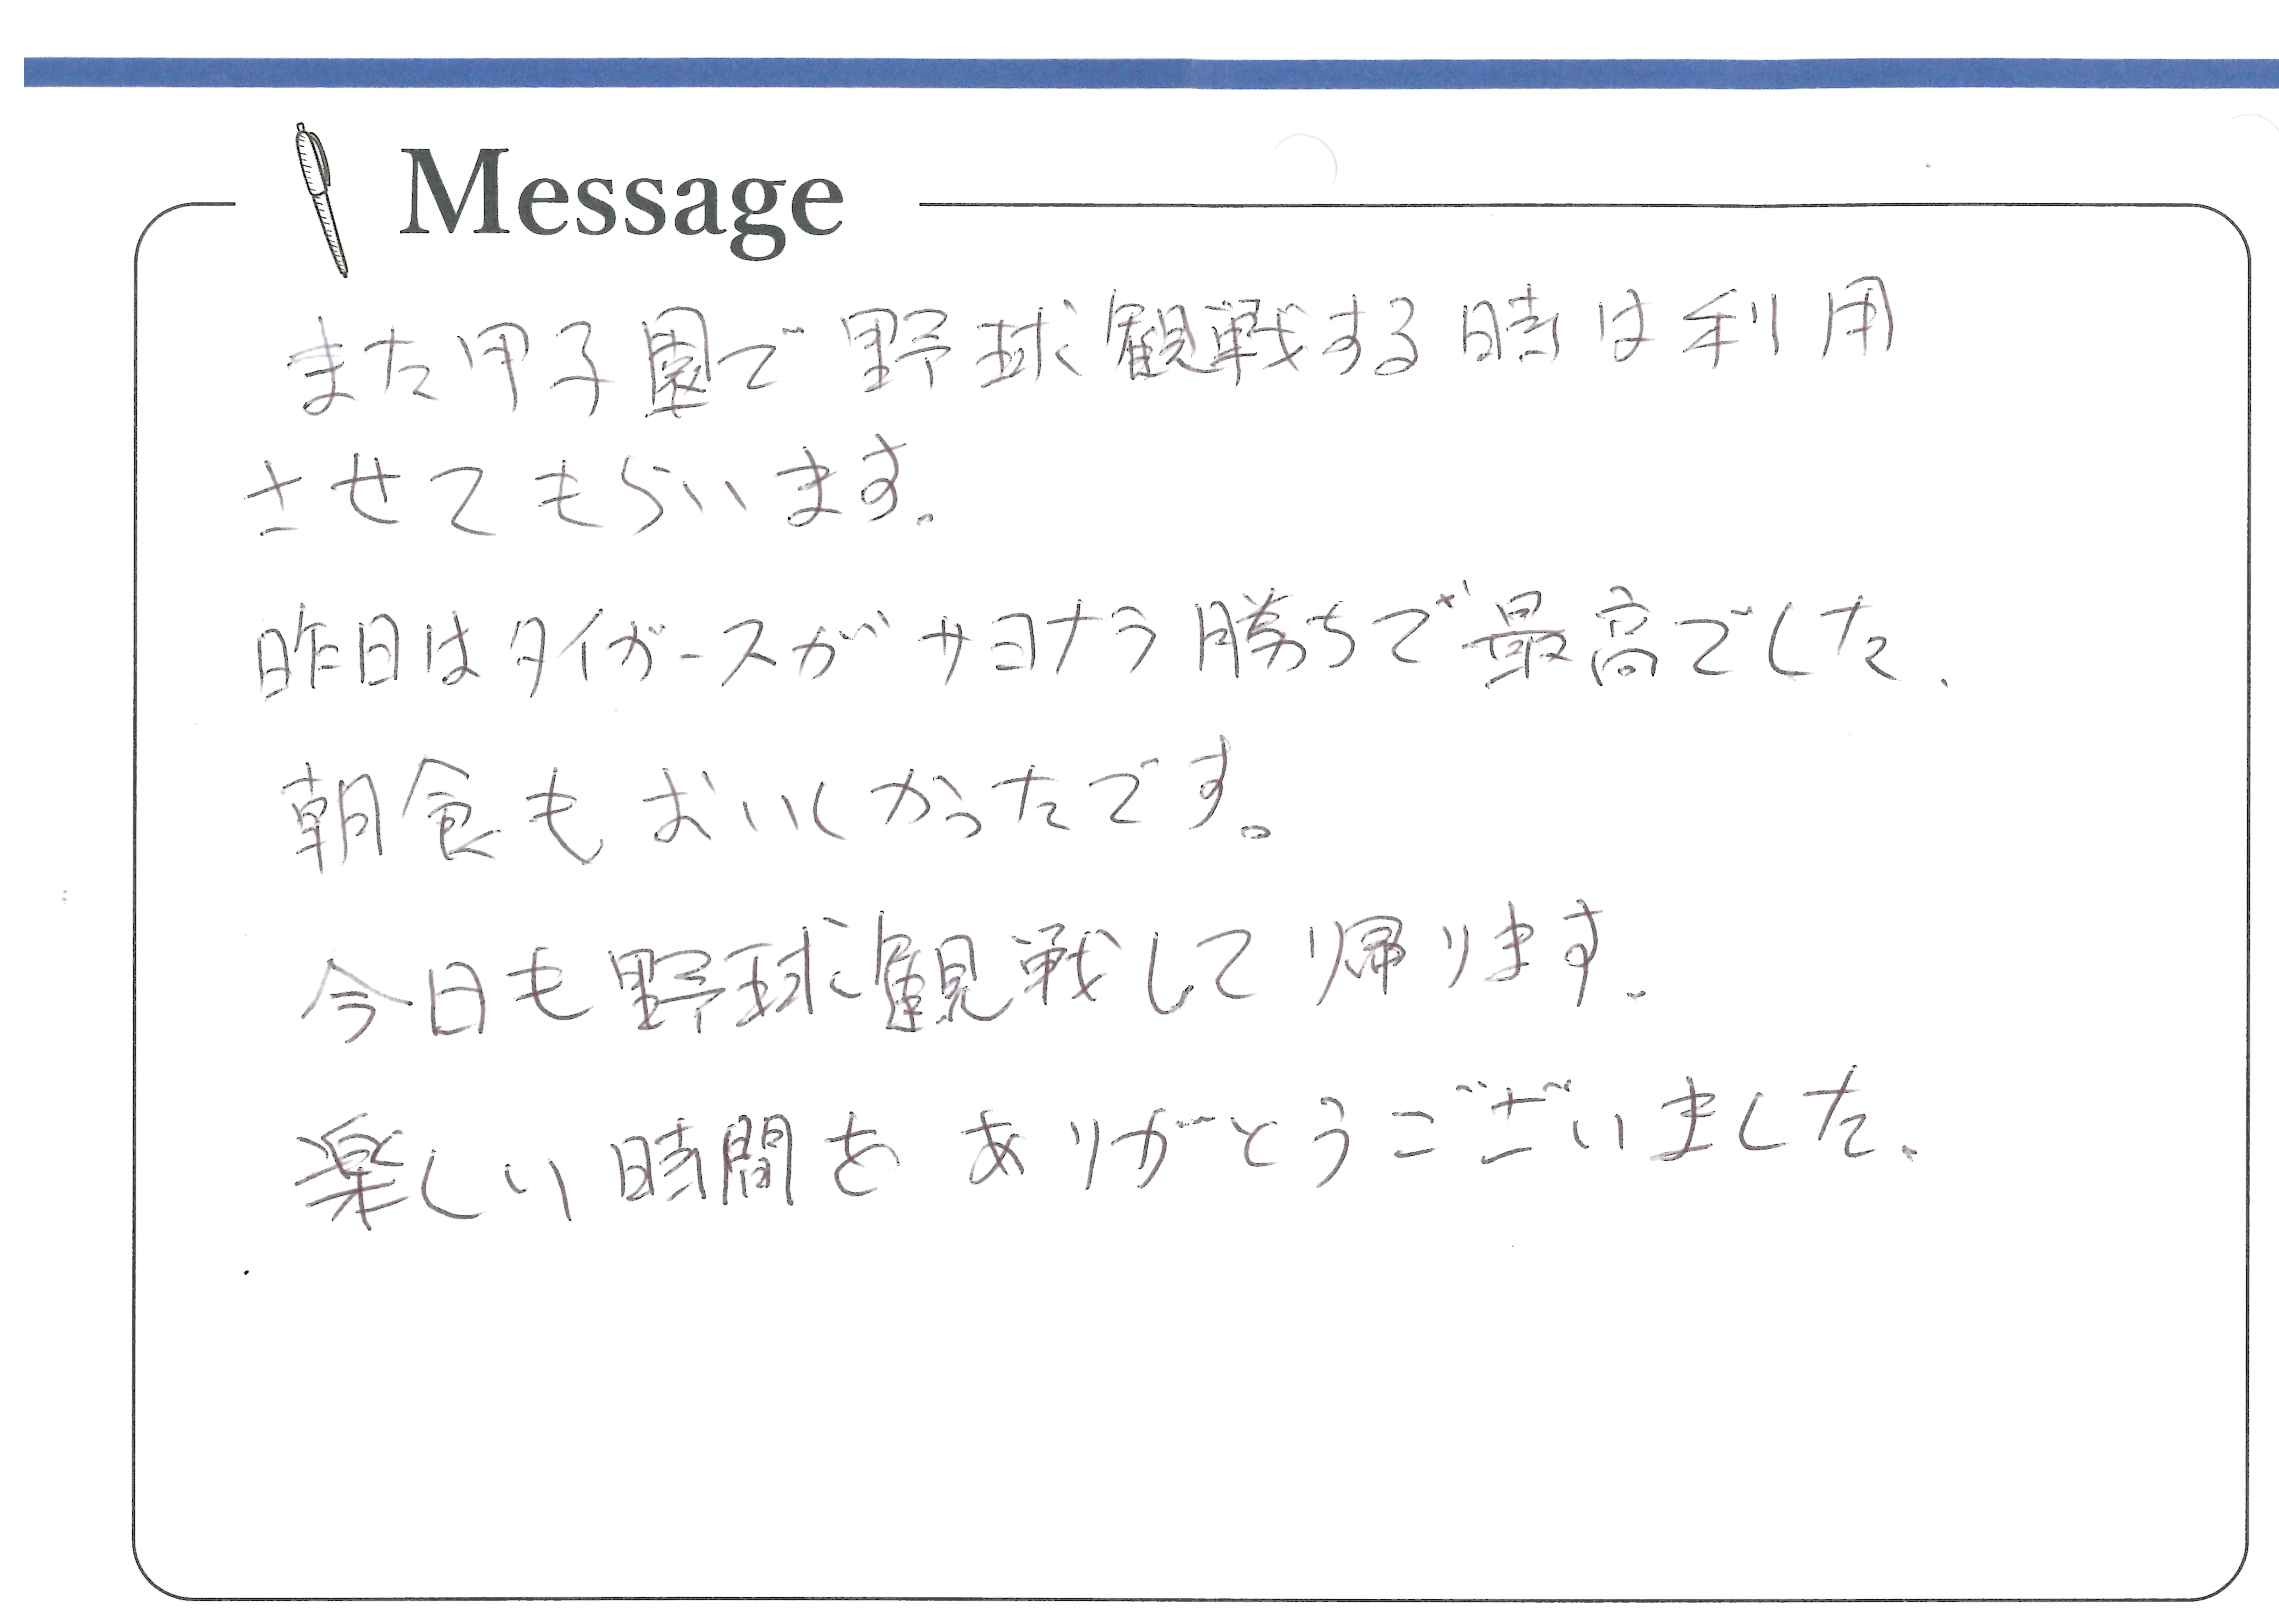 Message
また甲子園で野球観戦する時は利用
させてもらいます。
昨日はタイガースがサヨナラ勝ちで最高でした。
朝食もおいしかったです。
今日も野球観戦して帰ります。
楽しい時間をありがとうございました。